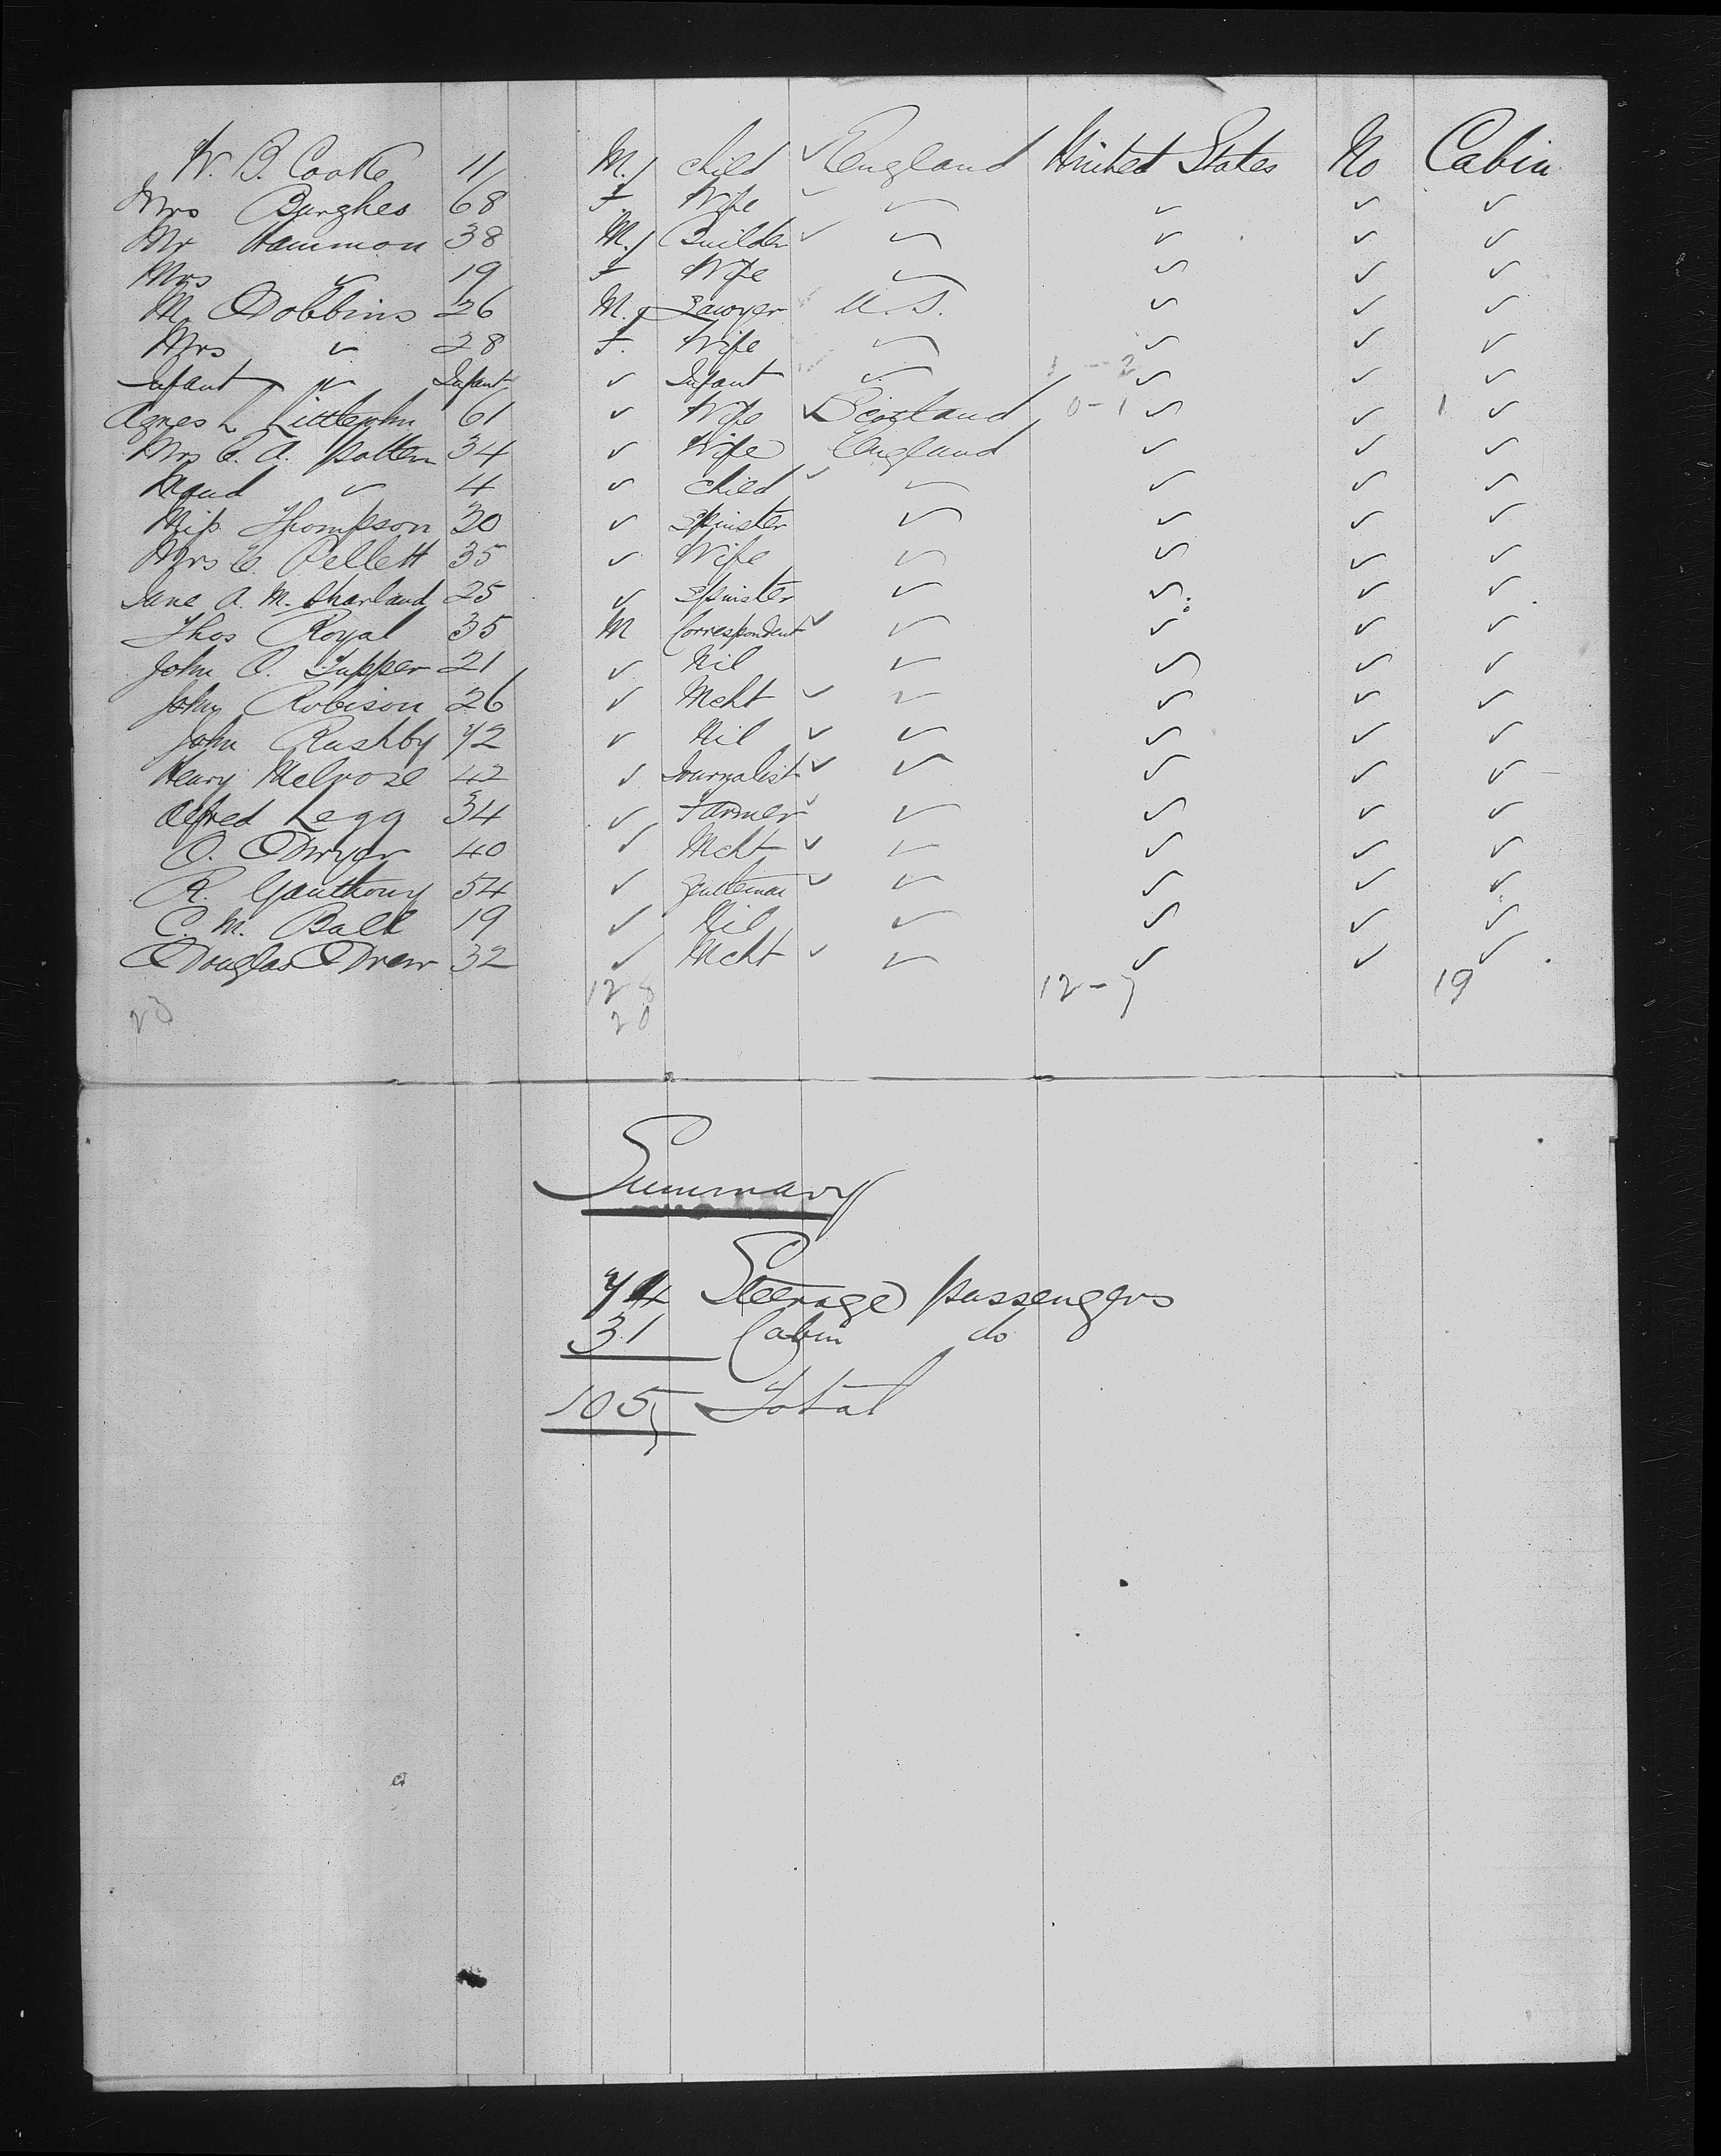 W. B. Cooke 11 M. child ✓ England United States No Cabin
Mrs Burghes 68 F Wife ✓ ✓ ✓ ✓ ✓
Mr Hammon 38 M. Builder ✓ ✓ ✓ ✓ ✓
Mrs ✓ 19 F Wife ✓ ✓ ✓ ✓
M. Dobbins 26 M. Lawyer ✓ U.S. ✓ ✓ ✓
Mrs ✓ 28 F. Wife ✓ ✓ ✓ ✓
Infant ✓ Infant ✓ Infant ✓ 1 - 2 ✓ ✓ ✓
Agnes L Littlejohn 61 ✓ Wife ✓ Scotland 0-1 ✓ ✓ 1 ✓
Mrs C. A. Patten 34 ✓ Wife England ✓ ✓ ✓
Maud ✓ 4 ✓ child ✓ ✓ ✓ ✓ ✓
Miss Thompson 20 ✓ Spinster ✓ ✓ ✓ ✓
Mrs C. Pellett 35 ✓ Wife ✓ ✓ ✓ ✓
Jane A. M. Sharland 25 ✓ Spinster ✓ ✓ ✓ ✓
Thos Royal 35 M Correspondent ✓ ✓ ✓ ✓ ✓
John O. Tupper 21 ✓ Nil ✓ ✓ ✓ ✓
John Robison 26 ✓ Mcht ✓ ✓ ✓ ✓ ✓
John Rushby 72 ✓ Nil ✓ ✓ ✓ ✓ ✓
Henry Melrose 42 ✓ Journalist ✓ ✓ ✓ ✓ ✓
Alfred Legg 34 ✓ Farmer ✓ ✓ ✓ ✓ ✓
O. Dwyer 40 ✓ Mcht ✓ ✓ ✓ ✓ ✓
R. Gauthony 54 ✓ Gentleman ✓ ✓ ✓ ✓ ✓
C. M. Ball 19 ✓ Nil ✓ ✓ ✓ ✓
Douglas Drew 32 ✓ Mcht ✓ ✓ ✓ ✓ ✓
12 8 12 - 7 19
20
Summary
74 Steerage passengers
31 Cabin do
105 Total